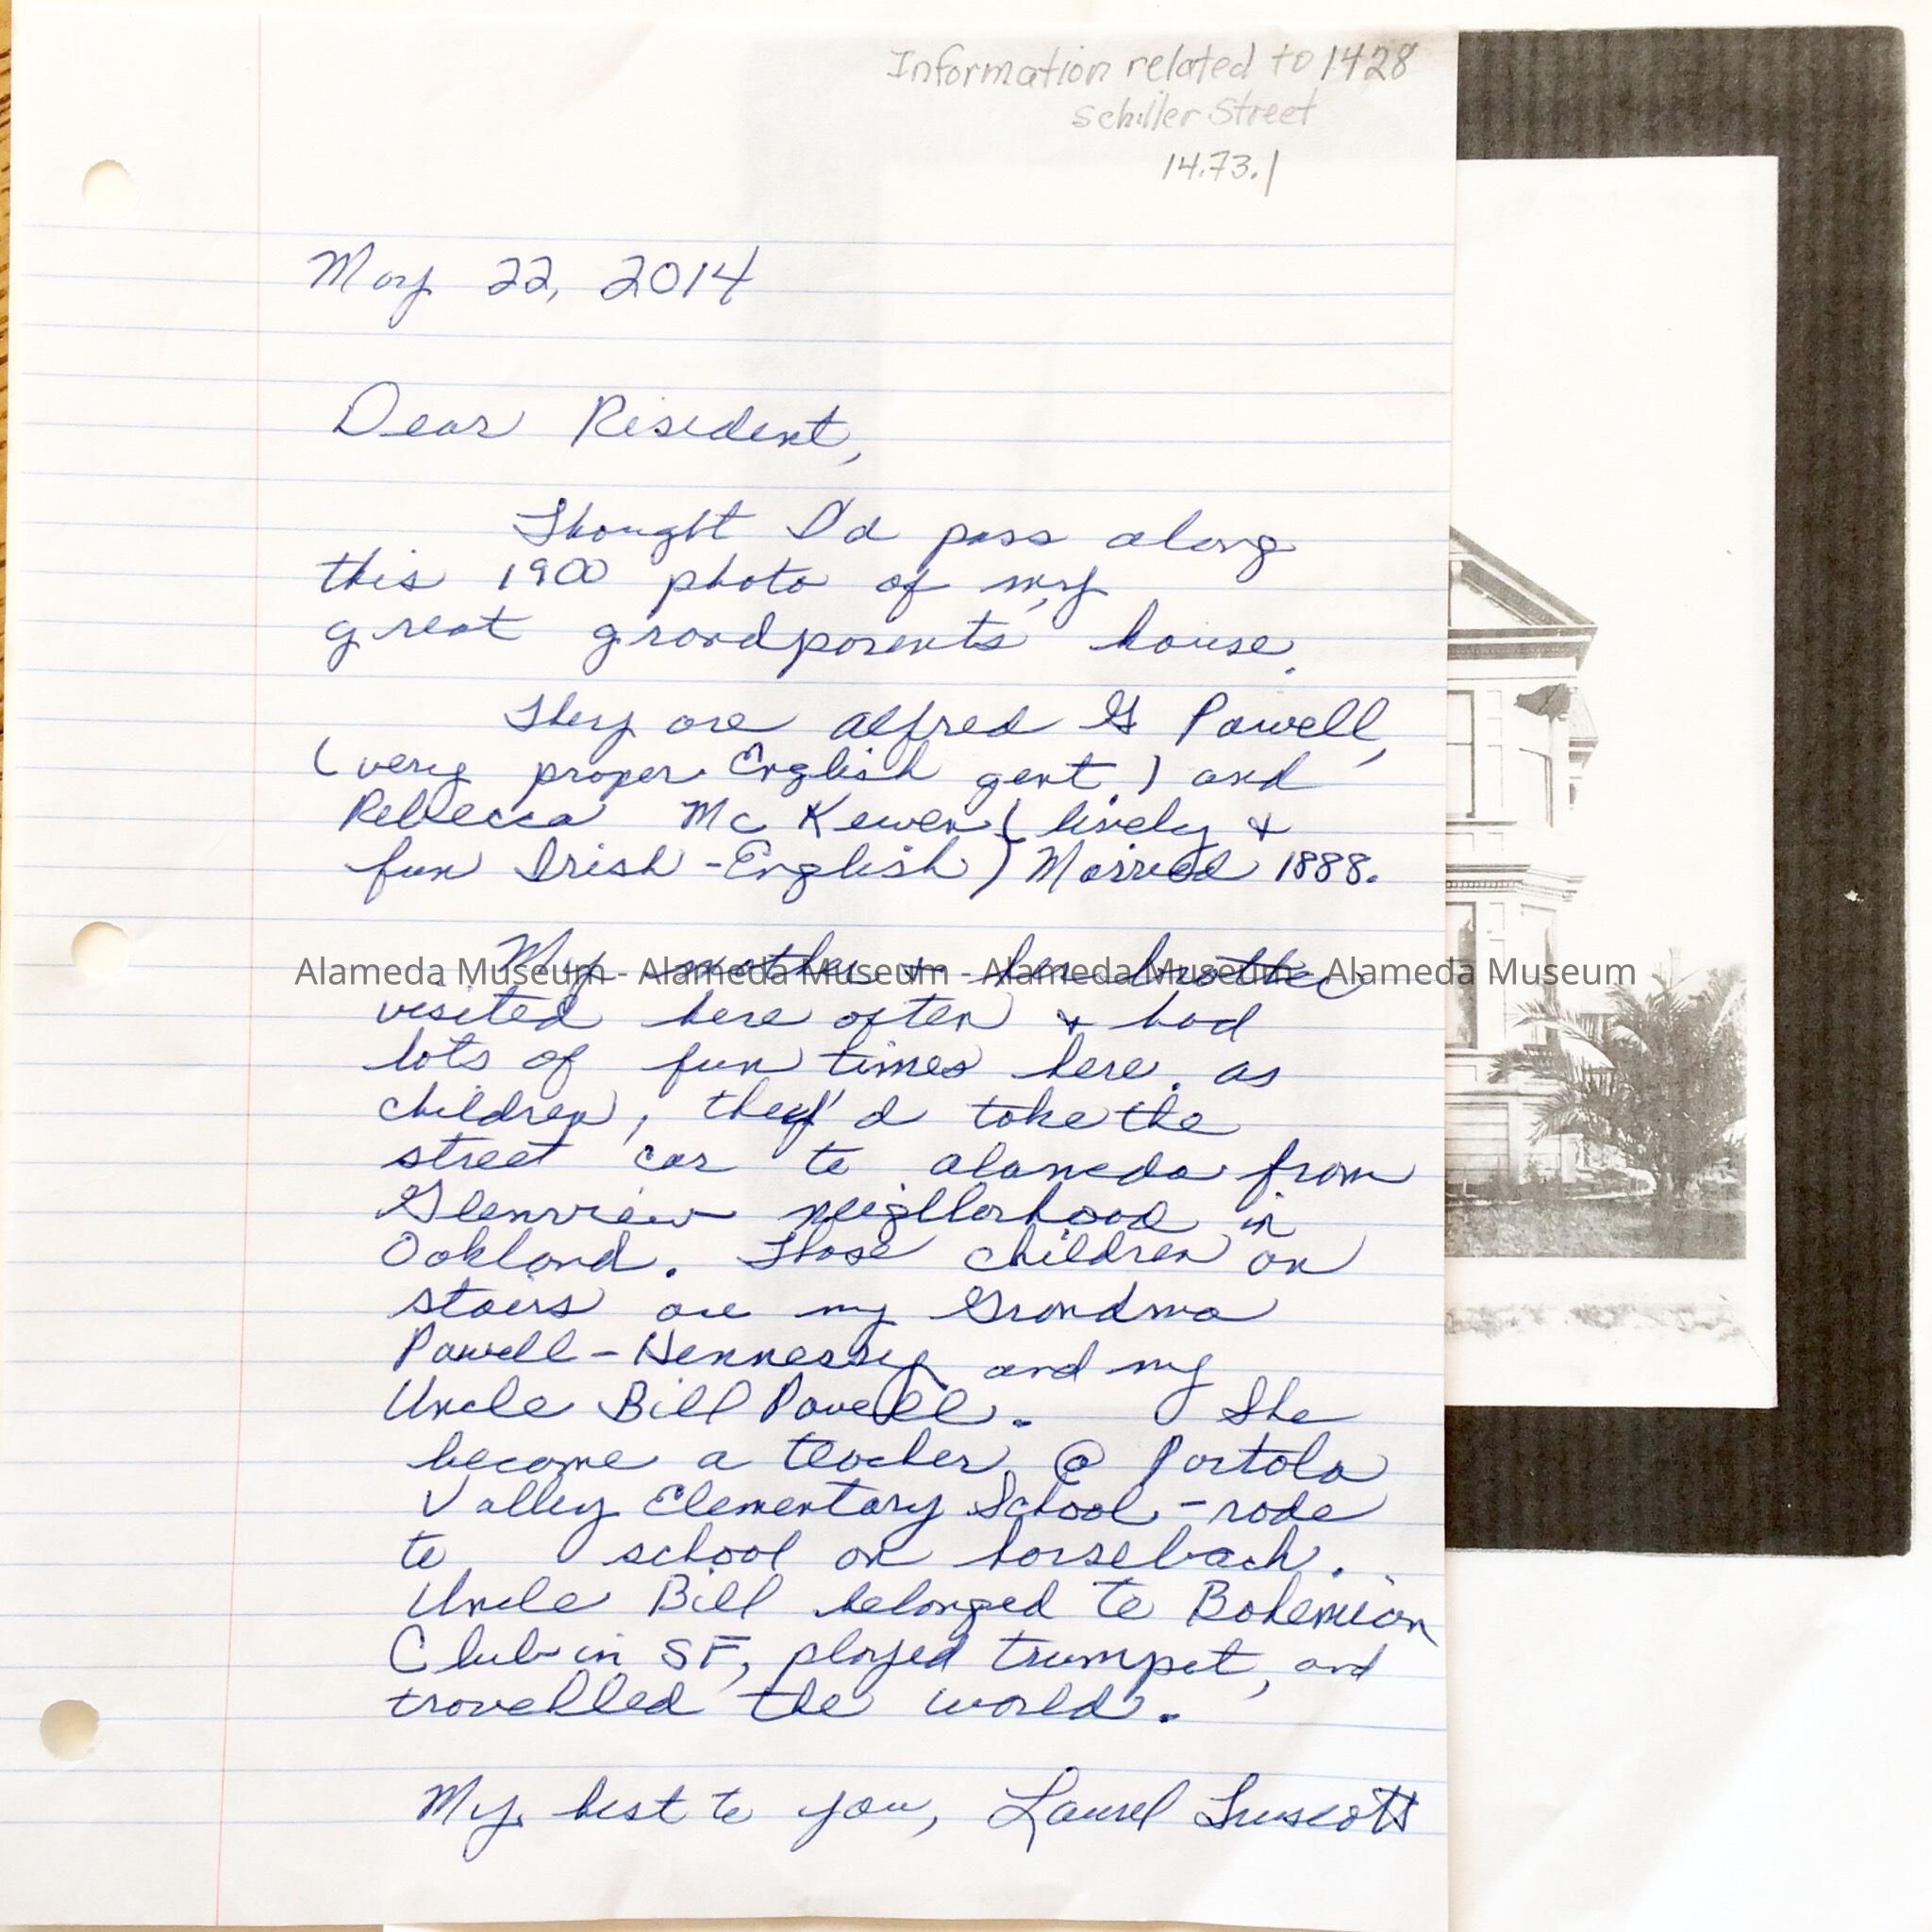 Information related to 1428
Schiller Street
14.73.1
May 22, 2014
Dear Resident,
Thought I'd pass along
this 1900 photo of my
great grandparents' house.
They are Alfred G Powell,
(very proper English gent.) and
Rebecca McKewen (lively &
fun Irish-English) Married 1888.
My mother & her brother
visited here often & had
lots of fun times here. As
children, they'd take the
street car to Alameda from
Glenview neighborhood in
Oakland. Those children on
stairs are my Grandma
Powell-Hennessy and my
Uncle Bill Powell. She
became a teacher @ Portola
Valley Elementary School - rode
to school on horseback.
Uncle Bill belonged to Bohemian
Club in SF, played trumpet, and
travelled the world.
My best to you, Laurel Truscott
Alameda Museum - Alameda Museum - Alameda Museum - Alameda Museum